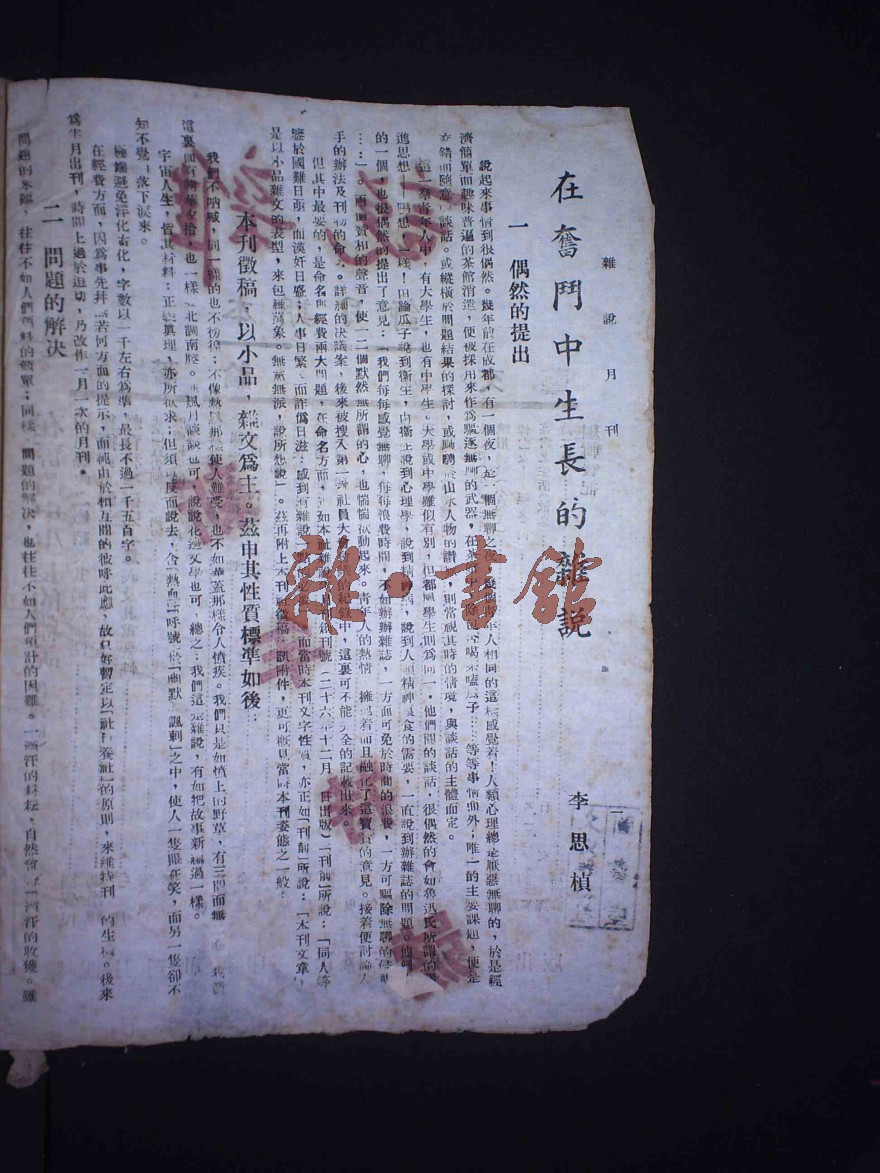 雜說月刊
一
在奮鬥中生長的雜說
李思楨
一　偶然的提出
說起來事情到很偶然。幾年前在成都，有一個夜，是一個無聊之夜，人相同的這樣感覺着！人類心理總是厭惡無聊的，於是經
濟簡單而趣味普遍的茶館消遣，便被採用來作為驅逐無聊的武器，在茶喝茶嗑瓜子……等等事情而外；唯一的主要課題，便是
交錯而隨意的談話。或縱橫於問題結果的探討，或馳騁於山水人物的讚，則當視其時的情境，與談話的主體而定。
這一羣青年人中，有大學生，也有中學生。大學或中學雖似有別，但都與學生則為同一，他們間的談話，很偶然的會如魯迅氏所謂的
進思想」嗎想，一樣！由論瓜子說到衛生，由衛生說到心理學，說到精神病，說到人類精神食的需要，一直說到辦雜誌的問題。他們
的一個，也很偶然的提出了意見：「我們每每感覺無聊，每每浪費時間，不如辦辦雜誌，一方面可免於時間的浪費，一方可驅除無聊的侵
……」。兩面贊和的聲音，使一二個默然無所謂的心，也惴惴依動起來。青年人的熱情，擁抱着而且融化了這寶貴的意見。接着便討論入
手的辦法及刊物的命名。詳細的決議案，後來被搜入第一次社員大會的紀錄中，這裏可不能完全的記載出來。
但其中最要的，是命名與經費兩大問題，在命名方面，如本社雜說創刊號（二十六年十二月一日出版）「刊前」所說：「同人等
鑒於國難日亟，而漢奸日盛；人事日繁，而詐僞日滋：感到有雜說之必要」。而當時本刊文字性質，亦正如「刊前」所說：「本刊文章，
是以小品雜文的表型，來包羅萬象。無黨無派，說所想說」。茲再附上本刊徵稿附件，更可概見當時本刊姿態之一般：
本刊徵稿，以小品，雜文爲主。茲申其性質標準如後：
我們不吶喊，同一樣的也不彷徨；不像熱風那樣使人難受，也不如華蓋那樣令人憤疾。我們只是如墳上的野草，有三閒而無二心，我們
這裏面有南華夕拾，也一樣有北調南腔。準風月談談也可，說說花邊文學也可，總之，我們這是雜說，有如把故事新編過一樣。
宇宙人生，皆其材料：正義真理，亦所欲求；但須以反面說去，含「熱血」「呼號」於「幽默」「諷刺」之中，使人一隻眼在笑，而另一隻卻不
知不覺的落下淚來。
極端避免洋化畜化，字數以一千左右為準，最長不過一千五百字。
在經費方面，因為事先幷無若何方面的提示，而純由於相互間的彼呼此應，故只好暫定以「社員養社」的原則，來維持刊的生命。後來
為半月出刊，時間上過於迫切，乃改作一月一次的月刊。
二　問題的解決
問題的來臨，往往不如人們預料的簡單；同樣，問題的解決，也往往不如人們預計的困難。一滴汗的耕耘，自然會有一滴汗的收獲。雖
雜·書館